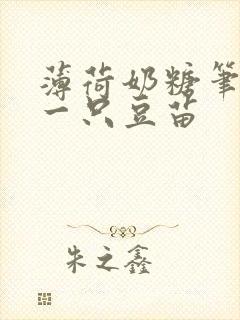 薄荷奶糖笔
一只豆苗
朱之鑫